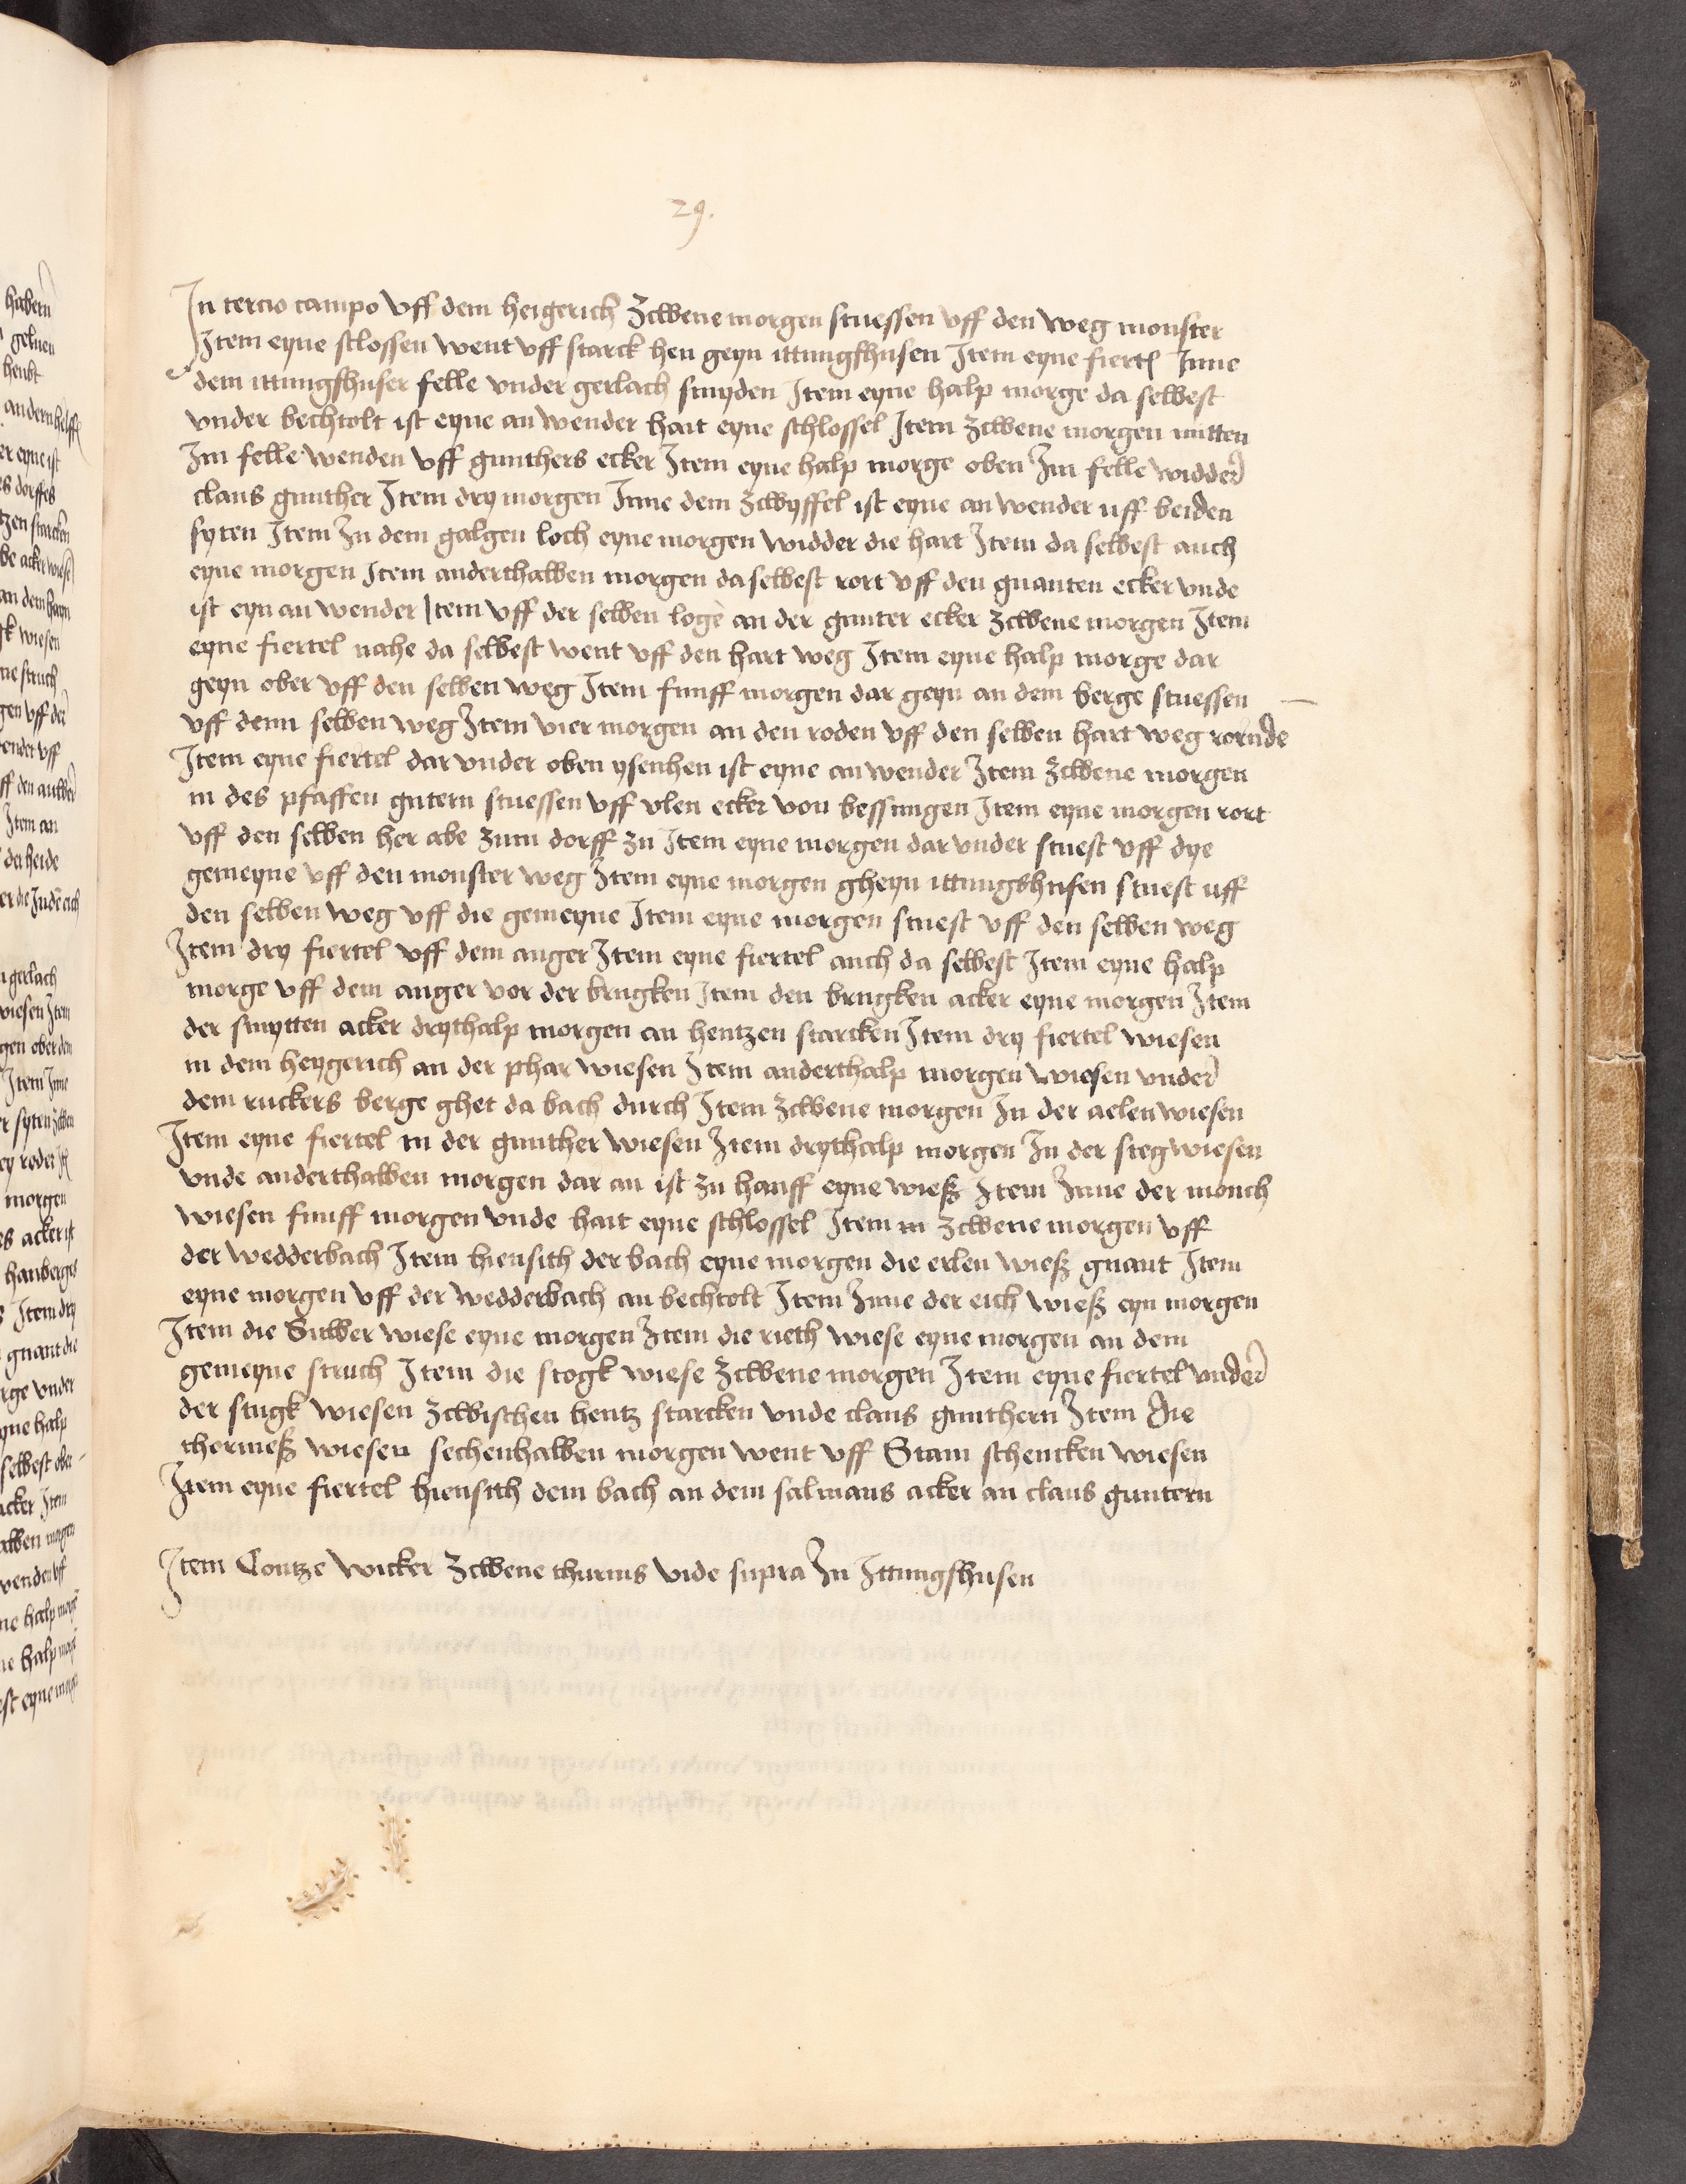 29.
In tercio campo vff dem heigerich zcwene morgen stuessen vff den weg monster
Item eyne slossen went vff starck hen geyn ittingshusen Item eyne fiertel Inne
dem ittingshuser felle vnder gerlach smyden Item eyne halp morge da selbest
vnder bechtolt ist eyne an wender hait eyne schlossel Item zcwene morgen mitten
Im felle wenden vff gunthers ecker Item eyne halp morge oben Im felle widder
claus gunther Item dry morgen Inne dem zcwyffel ist eyne an wender uff beiden
syten Item In dem galgen loch eyne morgen widder die hart Item da selbest auch
eyne morgen Item anderthalben morgen da selbest rort vff den gnanten ecker vnde
ist eyn an wender Item vff der selben loge an der gunter ecker zcwene morgen Item
eyne fiertel nahe da selbest went vff den hart weg Item eyne halp morge dar
geyn ober vff den selben weg Item funff morgen dar geyn an dem berge stuessen
vff denn selben weg Item vier morgen an den roden vff den selben hart weg rornde
Item eyne fiertel dar vnder oben ysenhen ist eyne an wender Item zcwene morgen
in des pfaffen gutern stuessen vff vlen ecker von bessingen Item eyne morgen rort
vff den selben her abe zum dorff zu Item eyne morgen dar vnder stuest vff dye
gemeyne vff den monster weg Item eyne morgen gheyn ittingshusen stuest uff
den selben weg vff die gemeyne Item eyne morgen stuest vff den selben weg
Item dry fiertel vff dem anger Item eyne fiertel auch da selbest Item eyne halp
morge vff dem anger vor der brugken Item den brugken acker eyne morgen Item
der smytten acker drythalp morgen an hentzen starcken Item dry fiertel wiesen
in dem heygerich an der phar wiesen Item anderthalp morgen wiesen vnder
dem ruckers berge ghet da bach durch Item zcwene morgen In der aelen wiesen
Item eyne fiertel in der gunther wiesen Item drythalp morgen In der steg wiesen
vnde anderthalben morgen dar an ist zu hauff eyne wieß Item Inne der monch
wiesen funff morgen vnde hait eyne schlossel Item in zcwene morgen vff
der wedderbach Item hiensith der bach eyne morgen die erlen wieß gnant Item
eyne morgen vff der wedderbach an bechtolt Item Inne der eich wieß eyn morgen
Item die Silber wiese eyne morgen Item die rieth wiese eyne morgen an dem
gemeyne struch Item die stogk wiese zcwene morgen Item eyne fiertel vnder
der stugk wiesen zcwischen hentz starcken vnde claus gunthern Item die
thormeß wiesen sechenhalben morgen went vff Stam schencken wiesen
Item eyne fiertel hiensith dem bach an dem salmans acker an claus guntern
Item Contze wicker zcwene thurnis vide supra In Ittingshusen